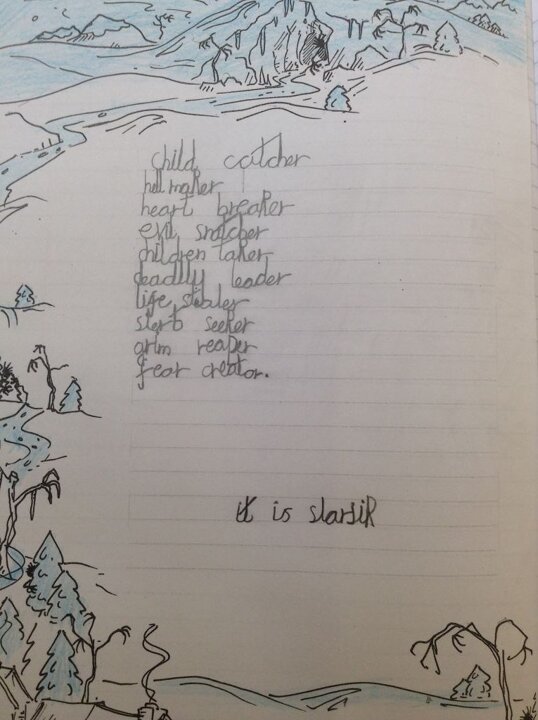 child catcher
hell maker
heart breaker
evil snatcher
children taker
deadly leader
life stealer
seeker
grim reaper
fear creator.
it is slarfiR